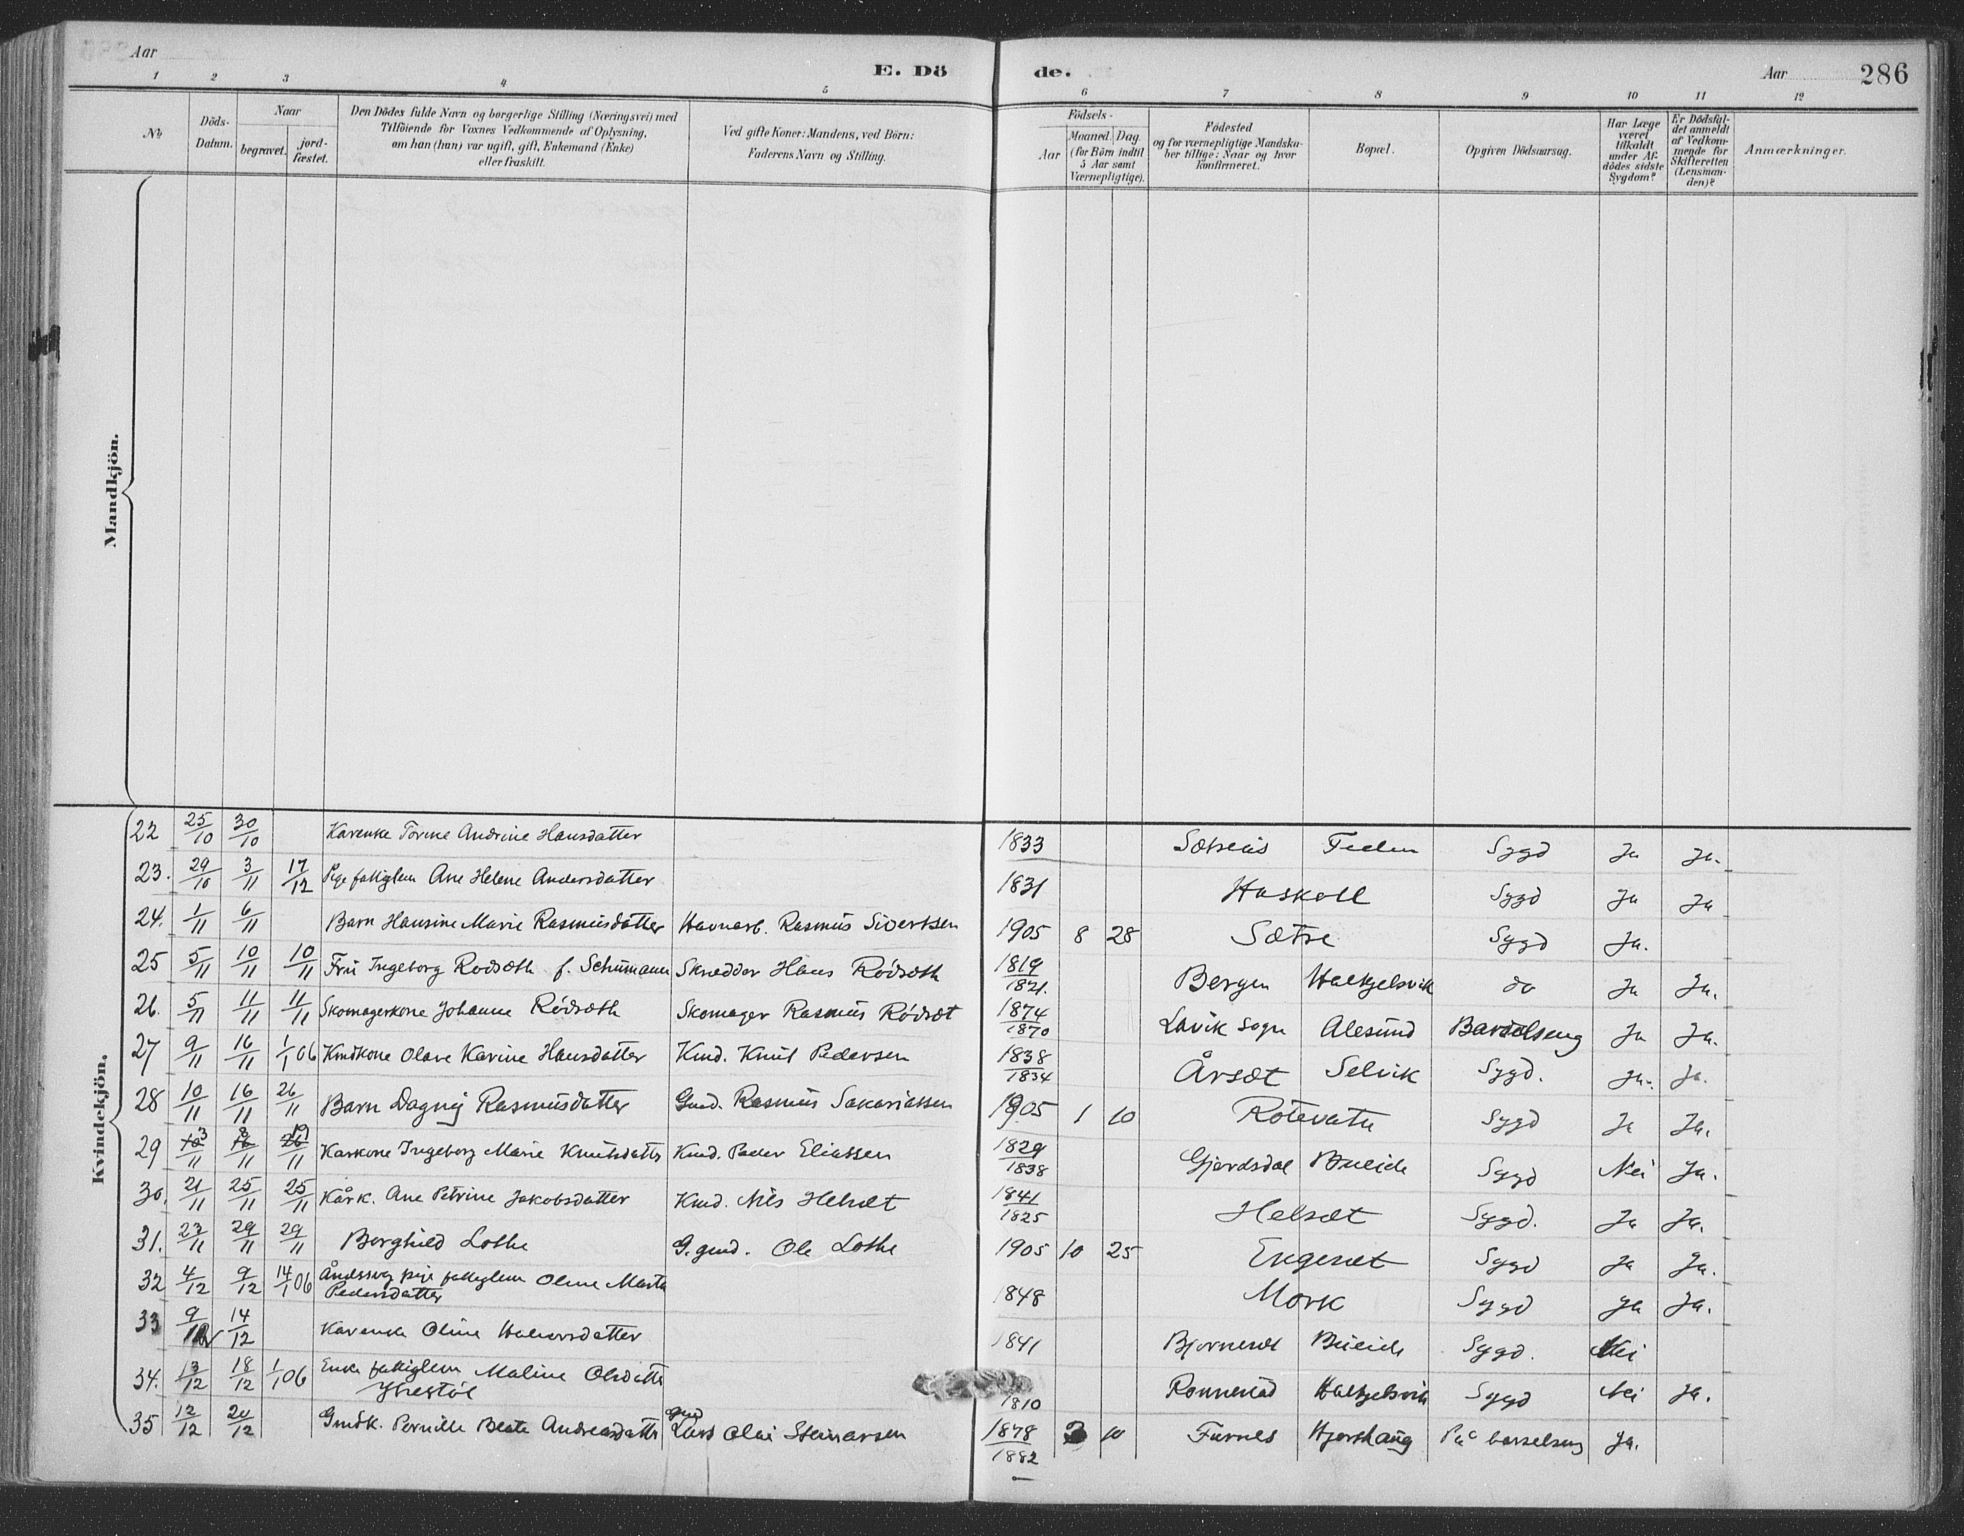 Aar
E. Dö
de.
Aar
286
1 2 3 4 5 6 7 8 9 10 11 12
No
Döds-
Datum.
Naar
begravet.
jord-
fæstet.
Den Dödes fulde Navn og borgerlige Stilling (Næringsvei) med
Tilföiende for Voxnes Vedkommende af Oplysning,
om han (hun) var ugift, gift, Enkemand (Enke)
eller fraskilt.
Ved gifte Koner: Mandens, ved Börn:
Faderens Navn og Stilling.
Födsels-
Aar
Maaned
Dag
(for Börn indtil
5 Aar samt
Værnepligtige).
Födested
og for værnepligtige Mandska-
ber tillige: Naar og hvor
konfirmeret.
Bopæl.
Opgiven Dödsaarsag.
Har Læge
været
tilkaldt
under Af-
dödes sidste
Sygdom?
Er Dödsfal-
det anmeldt
af Vedkom-
mende for
Skifteretten
(Lensman-
den)?
Anmærkninger.
Mandkjön.
Kvindekjön.
22 25/10 30/10 Kårenke Torine Andrine Hansdatter 1833 Sygd Ja Ja.
23. 29/10 3/11 17/12 Pige fattiglem Ane Helene Andersdatter 1831 Haskoll Sygd Ja Ja
24. 1/11 6/11 Barn Hansine Marie Rasmusdatter Havnarb. Rasmus Sivertsen 1905 8 28 Sætre Sygd Ja.
25 5/11 10/11 10/11 Fru Ingeborg Rodsæth f. Schumann Skredder Hans Rödsæth 1819/1821. Bergen Halkjelsvik do Ja Ja.
26. 5/11 11/11 11/11 Skomagerkone Johanne Rödsæth Skomager Rasmus Rödsæt 1874/1870 Lavik Sogn Alesund Barselseng Ja Ja.
27 9/11 16/11 1/1 06 Kmdkone Olave Karine Hansdatter Kmd. Knut Pedersen 1838/1834 Årsæt Selvik Sygd. Ja. Ja.
28 10/11 16/11 26/11 Barn Dagny Rasmusdatter Gmd. Rasmus Sakariassen 1905 1 10 Rotevatn Sygd Ja Ja.
29 3/11 8/11 19/11 Kårkone Ingeborg Marie Knutsdatter Kmd. Peder Eliassen 1829/1838 Gjerdsdal Bueide Sygd Nei Ja.
30. 21/11 25/11 25/11 Kårk. Ane Petrine Jakobsdatter Kmd. Nils Helsæt 1841/1825 Helsæt Sygd. Ja Ja.
31. 23/11 29/11 29/11 Borghild Lothe G. gmd. Ole Lothe 1905 10 25 Engeset Sygd Ja Ja.
32 4/12 9/12 14/1 06 Åndssvag pige fattiglem Oline Marta
Pedersdatter 1848 Mork Sygd Ja Ja.
33 9/12 14/12 Kårenke Oline Halvorsdatter 1841 Bjorneset Bueide Sygd. Nei
34. 13/12 18/12 1/1 06 Enke fattiglem Maline Olsdatter
Ytrestöl 1810 Ronnestad Halkjelsvik Sygd Nei Ja.
35 12/12 20/12 Gmdk. Pernille Beate Andreasdatter Gmd Lars Olai Steinarsen 1878/1882 3 10 Furnes Hjorthaug På barselseng Ja.